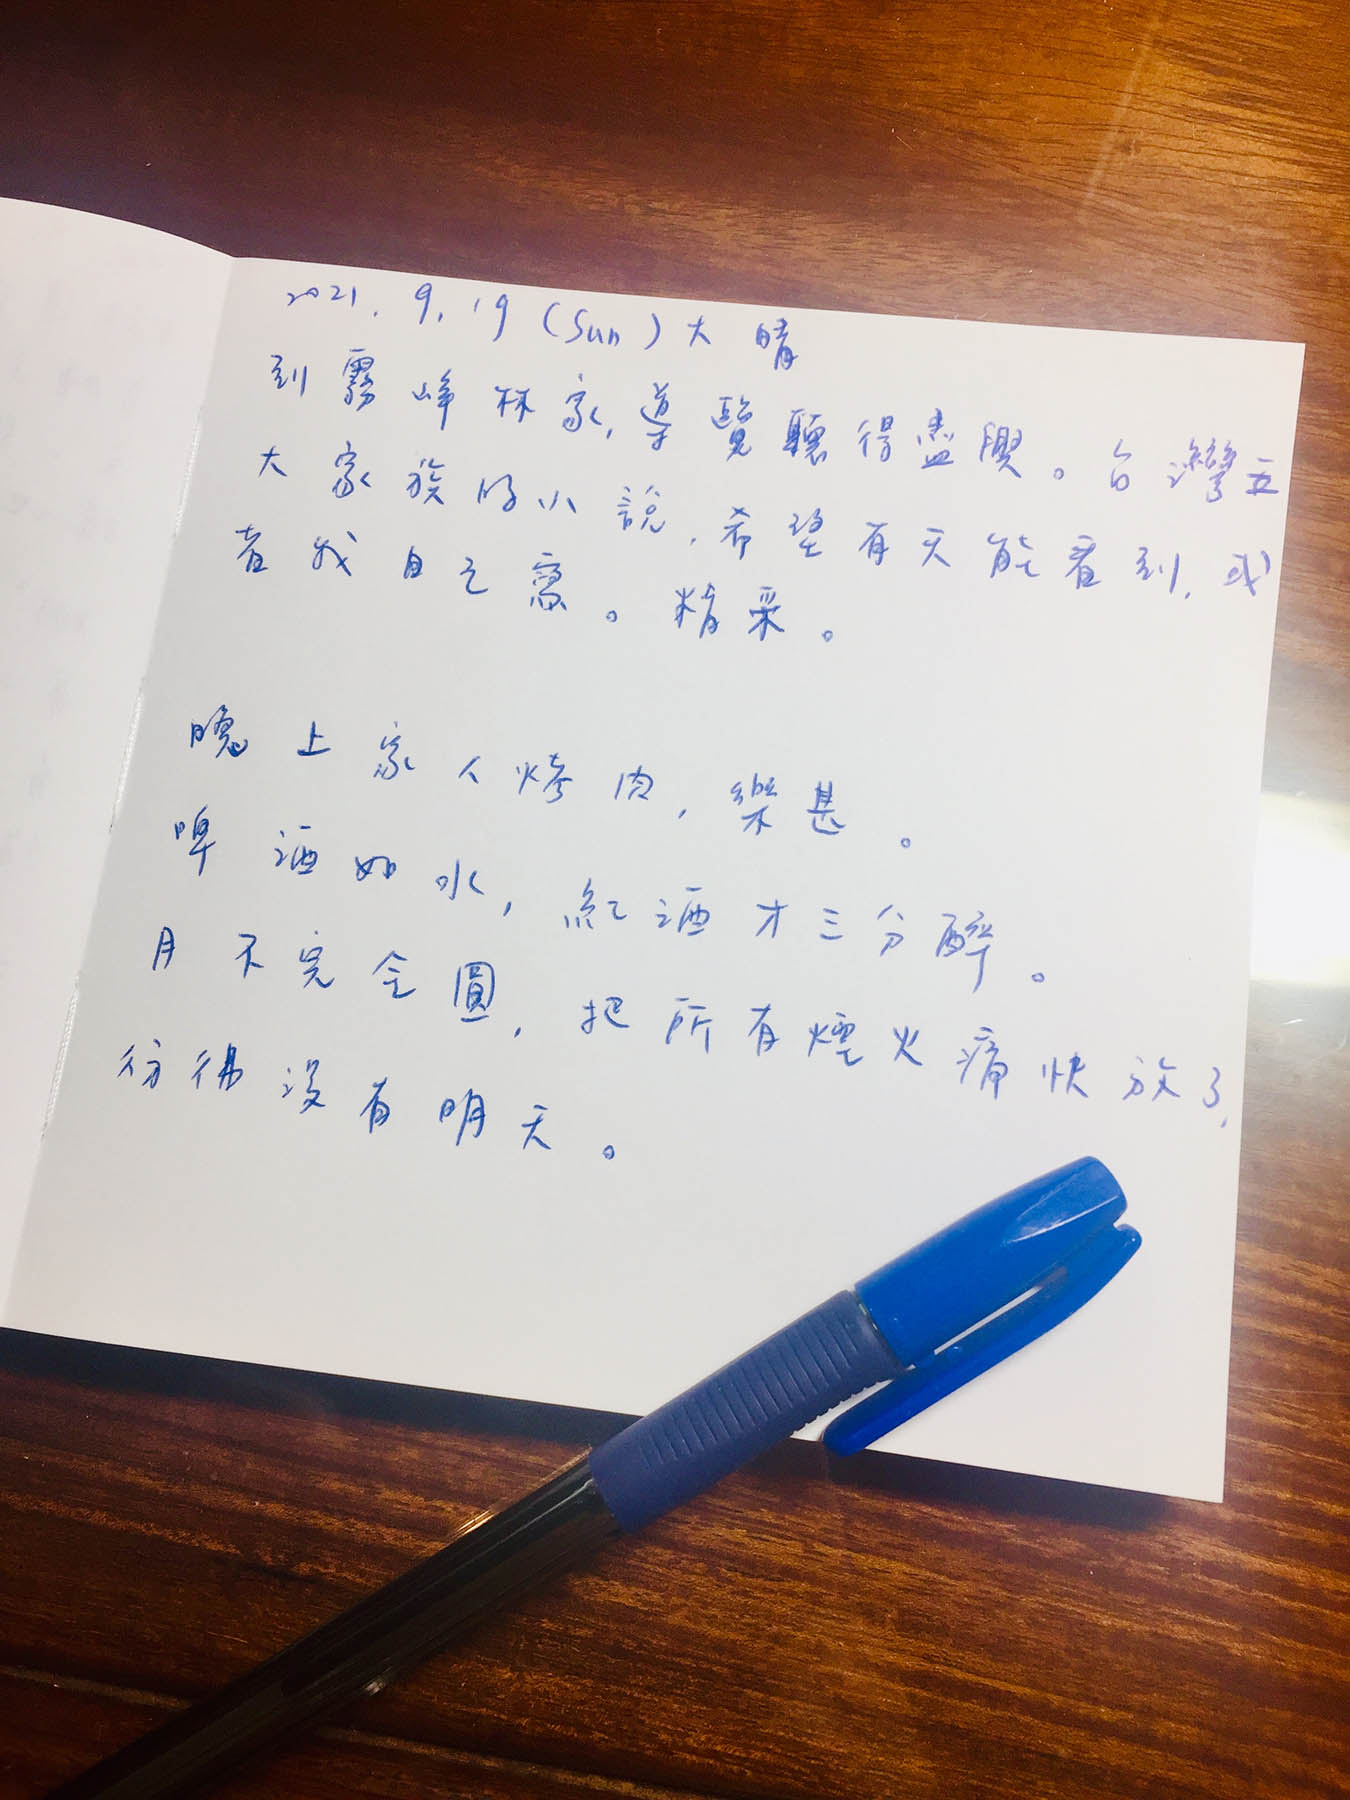 2021. 9. 19 (Sun) 大晴
到霧峰林家,導覽聽得盡興。台灣五
大家族的小說,希望有天能看到,或
者我自己寫。精采。
晚上家人烤肉,樂甚。
啤酒如水,紅酒才三分醉。
月不完全圓,把所有煙火痛快放了,
彷彿沒有明天。